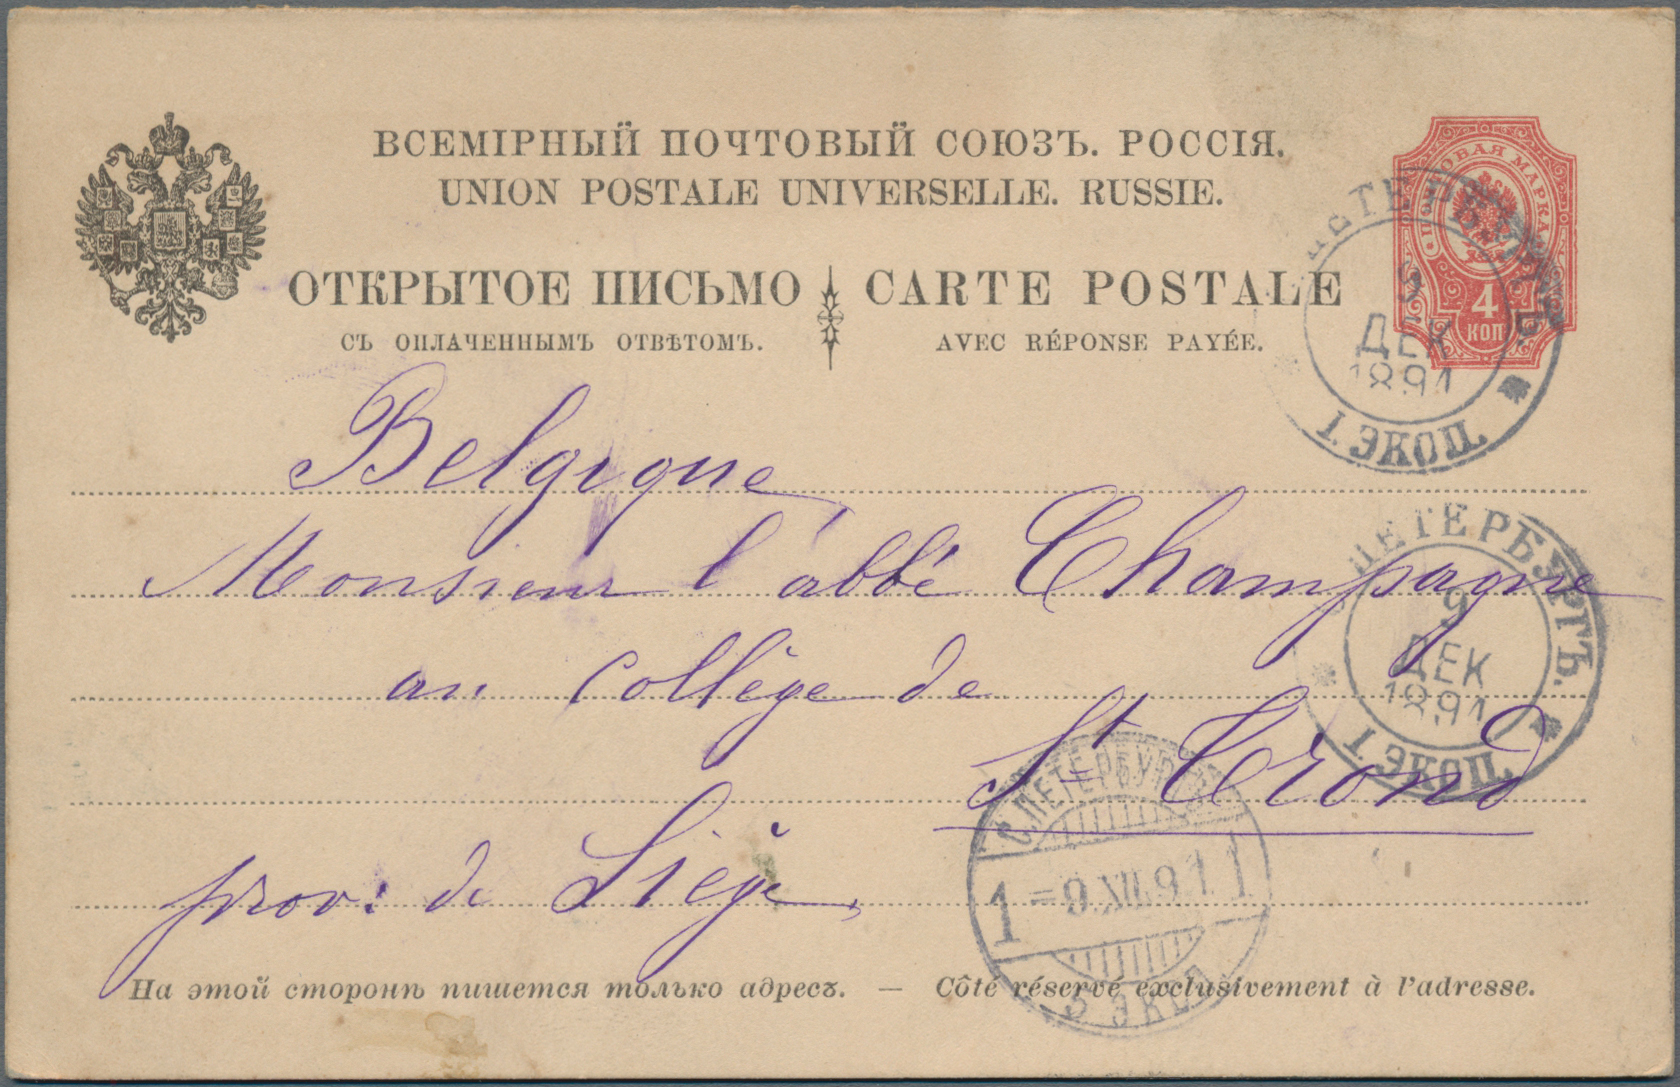 ВСЕМІРНЫЙ ПОЧТОВЫЙ СОЮЗЪ. РОССІЯ.
UNION POSTALE UNIVERSELLE. RUSSIE.
ОТКРЫТОЕ ПИСЬМО CARTE POSTALE
СЪ ОПЛАЧЕННЫМЪ ОТВѢТОМЪ. AVEC RÉPONSE PAYÉE.
ПОЧТОВАЯ МАРКА
4
КОП
9
ДЕК
1891
1. ЭКСП.
Belgique
Monsieur l'abbé Champagne
au collège de
St Trond
prov: de Liège,
ПЕТЕРБУРГЪ.
9
ДЕК
1891
1. ЭКСП.
С.ПЕТЕРБУРГЪ
1 = 9.XII.91 1
5 ЭКСП
На этой сторонѣ пишется только адресъ. — Côté réservé exclusivement à l'adresse.